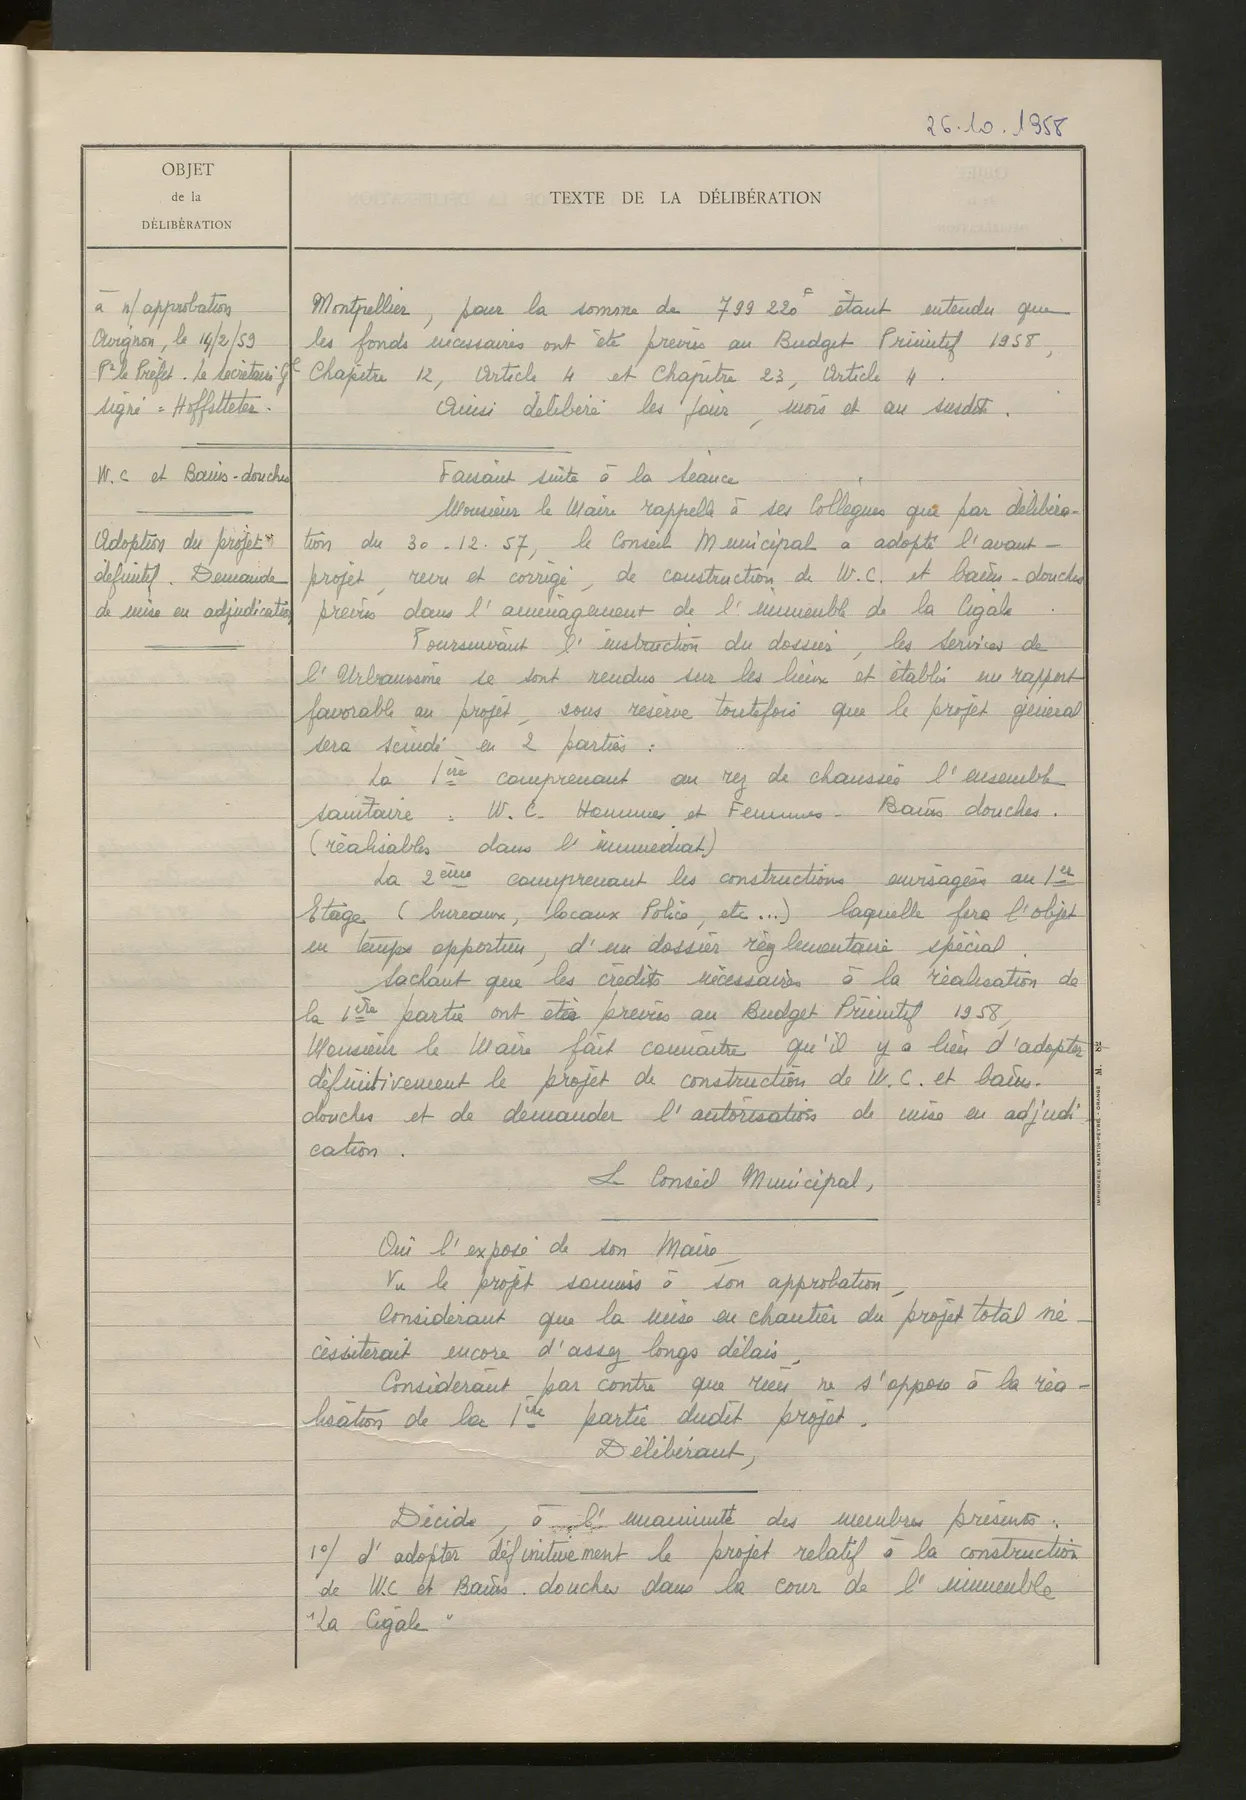 26.10.1958
OBJET
de la
DÉLIBÉRATION
TEXTE DE LA DÉLIBÉRATION
à n/ approbation
Avignon, le 14/2/59
Pr le Préfet. Le Secrétaire Gl
signé = Hoffstteter.
W.C et Bains-douches
Adoption du projet
définitif. Demande
de mise en adjudication
Montpellier, pour la somme de 799 220F étant entendu que
les fonds nécessaires ont été prévus au Budget Primitif 1958,
Chapitre 12, Article 4 et Chapitre 23, Article 4.
Ainsi délibéré les jour, mois et an susdits.
Faisant suite à la Séance
Monsieur le Maire rappelle à ses Collègues que par délibéra-
tion du 30.12.57, le Conseil Municipal a adopté l'avant-
projet, revu et corrigé, de construction de W.C. et bains-douches
prévus dans l'aménagement de l'immeuble de la Cigale.
Poursuivant l'instruction du dossier, les Services de
l'Urbanisme se sont rendus sur les lieux et établi un rapport
favorable au projet, sous réserve toutefois que le projet général
sera scindé en 2 parties :
La 1ère comprenant au rez de chaussée l'ensemble
sanitaire : W.C. Hommes et Femmes - Bains douches.
(réalisables dans l'immédiat)
La 2ème comprenant les constructions envisagées au 1er
Etage (bureaux, locaux Police, etc...) laquelle fera l'objet
en temps opportun, d'un dossier règlementaire spécial.
Sachant que les crédits nécessaires à la réalisation de
la 1ère partie ont étés prévus au Budget Primitif 1958,
Monsieur le Maire fait connaître qu'il y a lieu d'adopter
définitivement le projet de construction de W.C. et bains-
douches et de demander l'autorisation de mise en adjudi
cation.
Le Conseil Municipal,
Oui l'exposé de son Maire,
Vu le projet soumis à son approbation,
Considérant que la mise en chantier du projet total né-
cessiterait encore d'assez longs délais,
Considérant par contre que rien ne s'oppose à la réa-
lisation de la 1ère partie dudit projet.
Délibérant,
Décide, à l'unanimité des membres présents.
1°/ d'adopter définitivement le projet relatif à la construction
de W.C et Bains-douches dans la cour de l'immeuble
"La Cigale"
IMPRIMERIE MARTIN-PEYRE - ORANGE M. 82